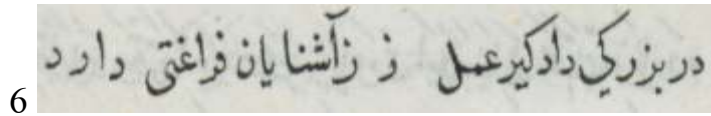 در بزرگی دادگیر عمل ز زآشنایان فراغتی دارد
6